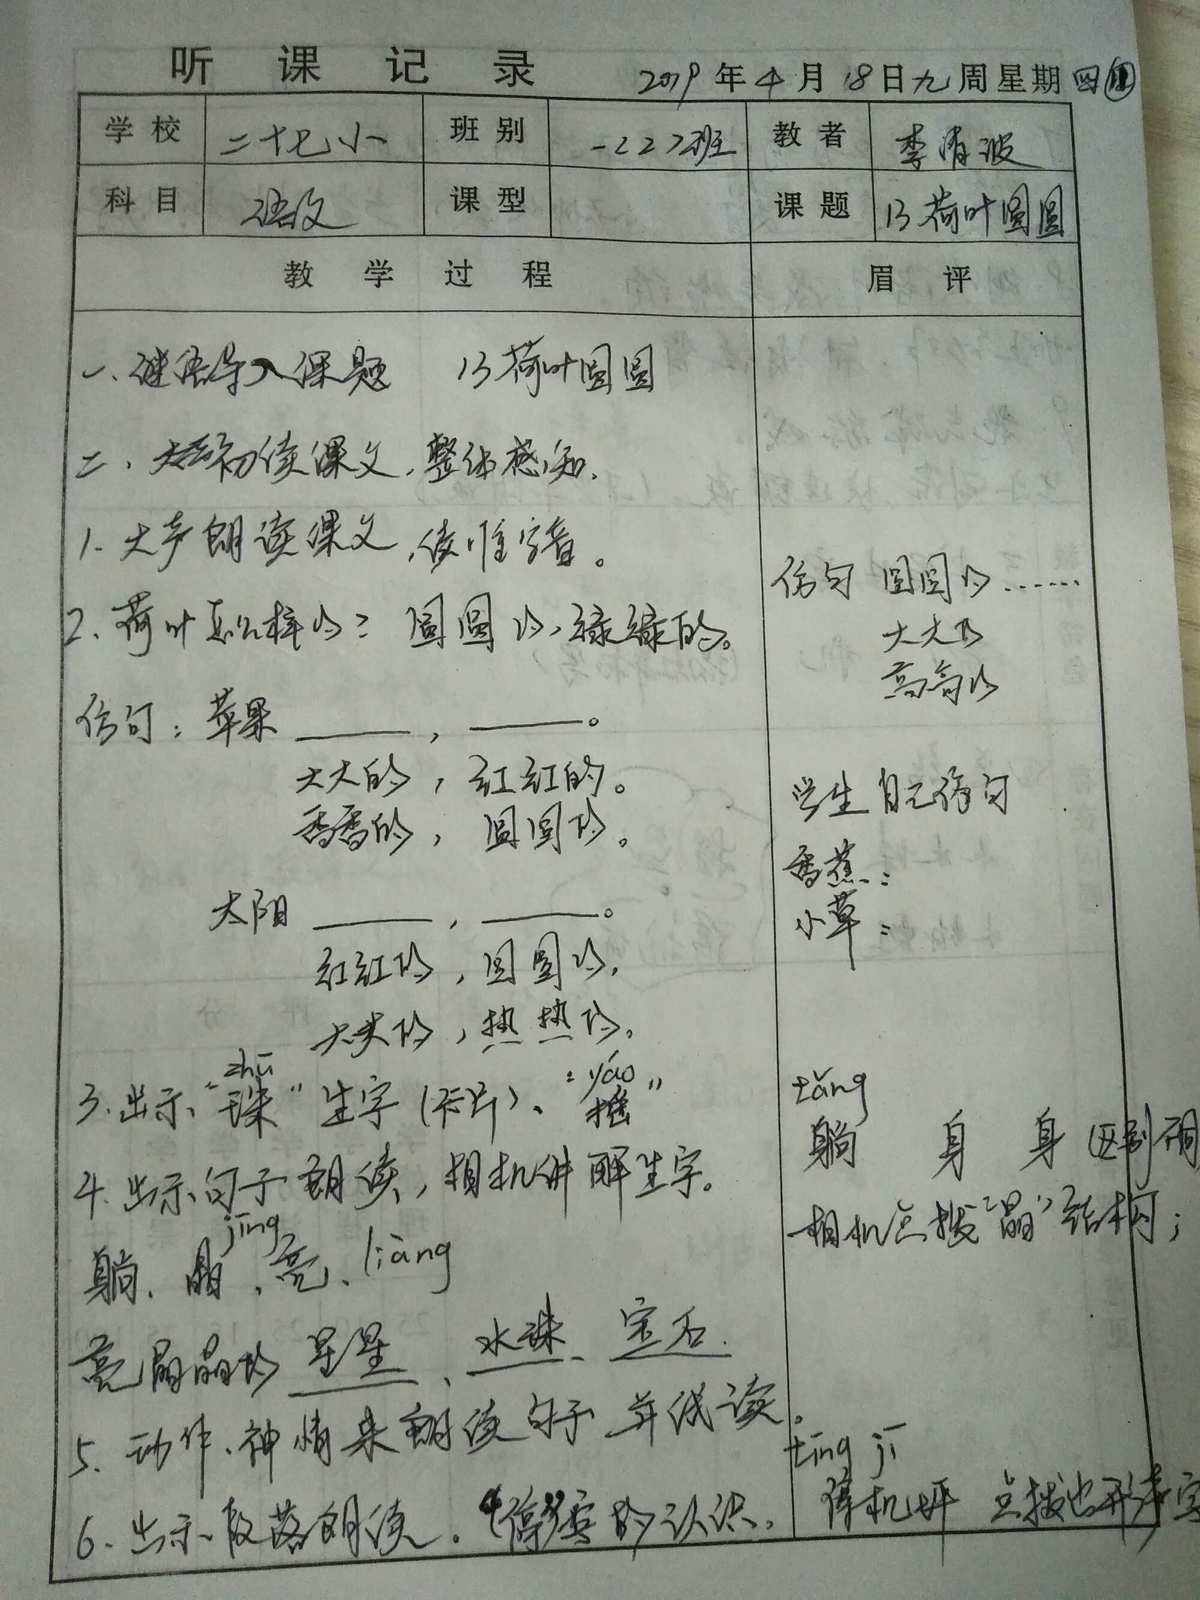 听课记录 2019年4月18日九周星期四
学校 二十七小 班别 教者 李清波
科目 语文 课型 课题 13荷叶圆圆
教学过程 眉评
一、谜语导入课题 13荷叶圆圆
二、初读课文,整体感知。
1.大声朗读课文,读准字音。
2.荷叶怎么样的? 圆圆的,绿绿的。
仿句 圆圆的……
大大的
高高的
仿句:苹果 ____,____。
大大的,红红的。
香香的,圆圆的。
学生自己仿句
香蕉:
小草:
太阳 ____,____。
红红的,圆圆的,
大大的,热热的。
zhū yáo
3.出示“珠”生字(卡片)、“摇”
4.出示句子朗读,相机讲解生字。
tǎng
躺 身 身 区别
相机点拨“晶”结构;
jīng
躺、晶、亮、liàng
亮晶晶的 星星、水珠、宝石.
5.动作、神情来朗读句子
6.出示段落朗读。 的认识,
tíng jī
停机坪 点拨出形声字